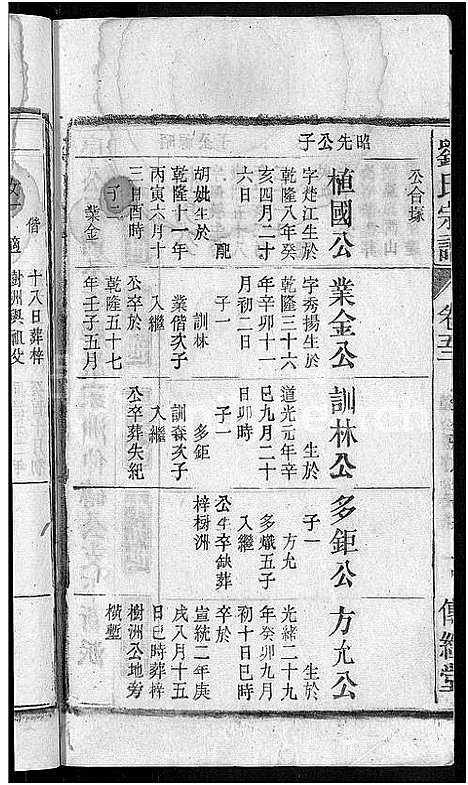 劉氏宗譜
卷五
傳經堂
公合塚
昭先公子
植國公
字楚江生於
乾隆八年癸
亥四月二十
六日
配
胡妣生於
乾隆十一年
丙寅六月十
三日酉時
子二
業金
業偕
業金公
字秀揚生於
乾隆三十六
年辛卯十一
月初二日
子一
訓林
業偕次子
入繼
公卒於
乾隆五十七
年壬子五月
十八日葬梓
樹洲與祖父
訓林公
生於
道光元年辛
巳九月二十
日卯時
子一
多鉅
訓森次子
入繼
公卒葬失紀
多鉅公
子一
方允
多熾五子
入繼
公生卒缺葬
梓樹洲
方允公
生於
光緒二十九
年癸卯九月
初十日巳時
卒於
宣統二年庚
戌八月十五
日巳時葬梓
樹洲公地旁
橫塹